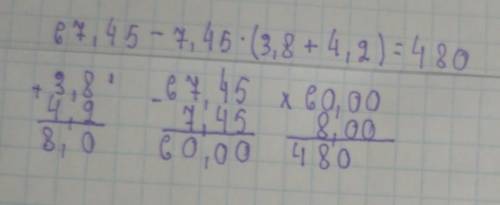 67,45 - 7,45 · (3,8 + 4,2) = 480
+ 3,8 - 67,45 x 60,00
4,2 7,45 8,00
8,0 60,00 480